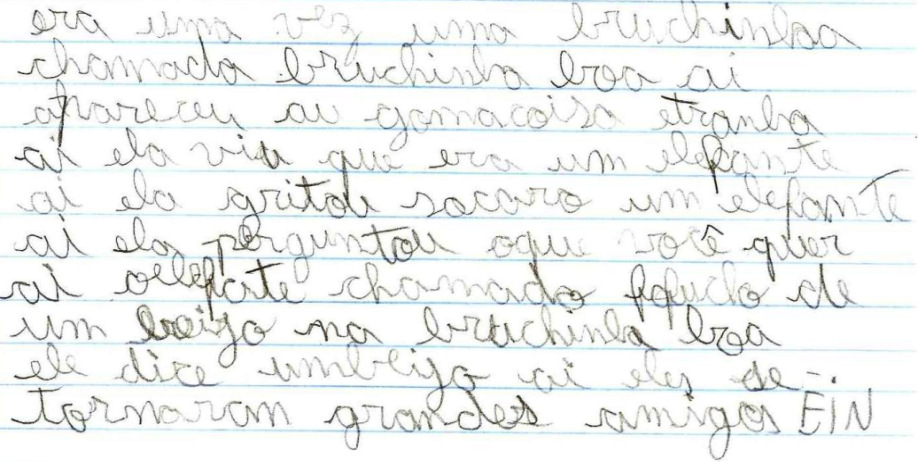 era uma vez uma bruchinhaa
chamada bruchinha boa ai
apareceu au gomacoisa etranha
ai ela viu que era um elefante
ai ela gritou socuro um elefante
ai ela perguntou oque você quer
ai oelefate chamado fofucho de
um beijo na bruchinha boa
ele dice umbeijo ai eles se-
tornaram grandes amigos FIN